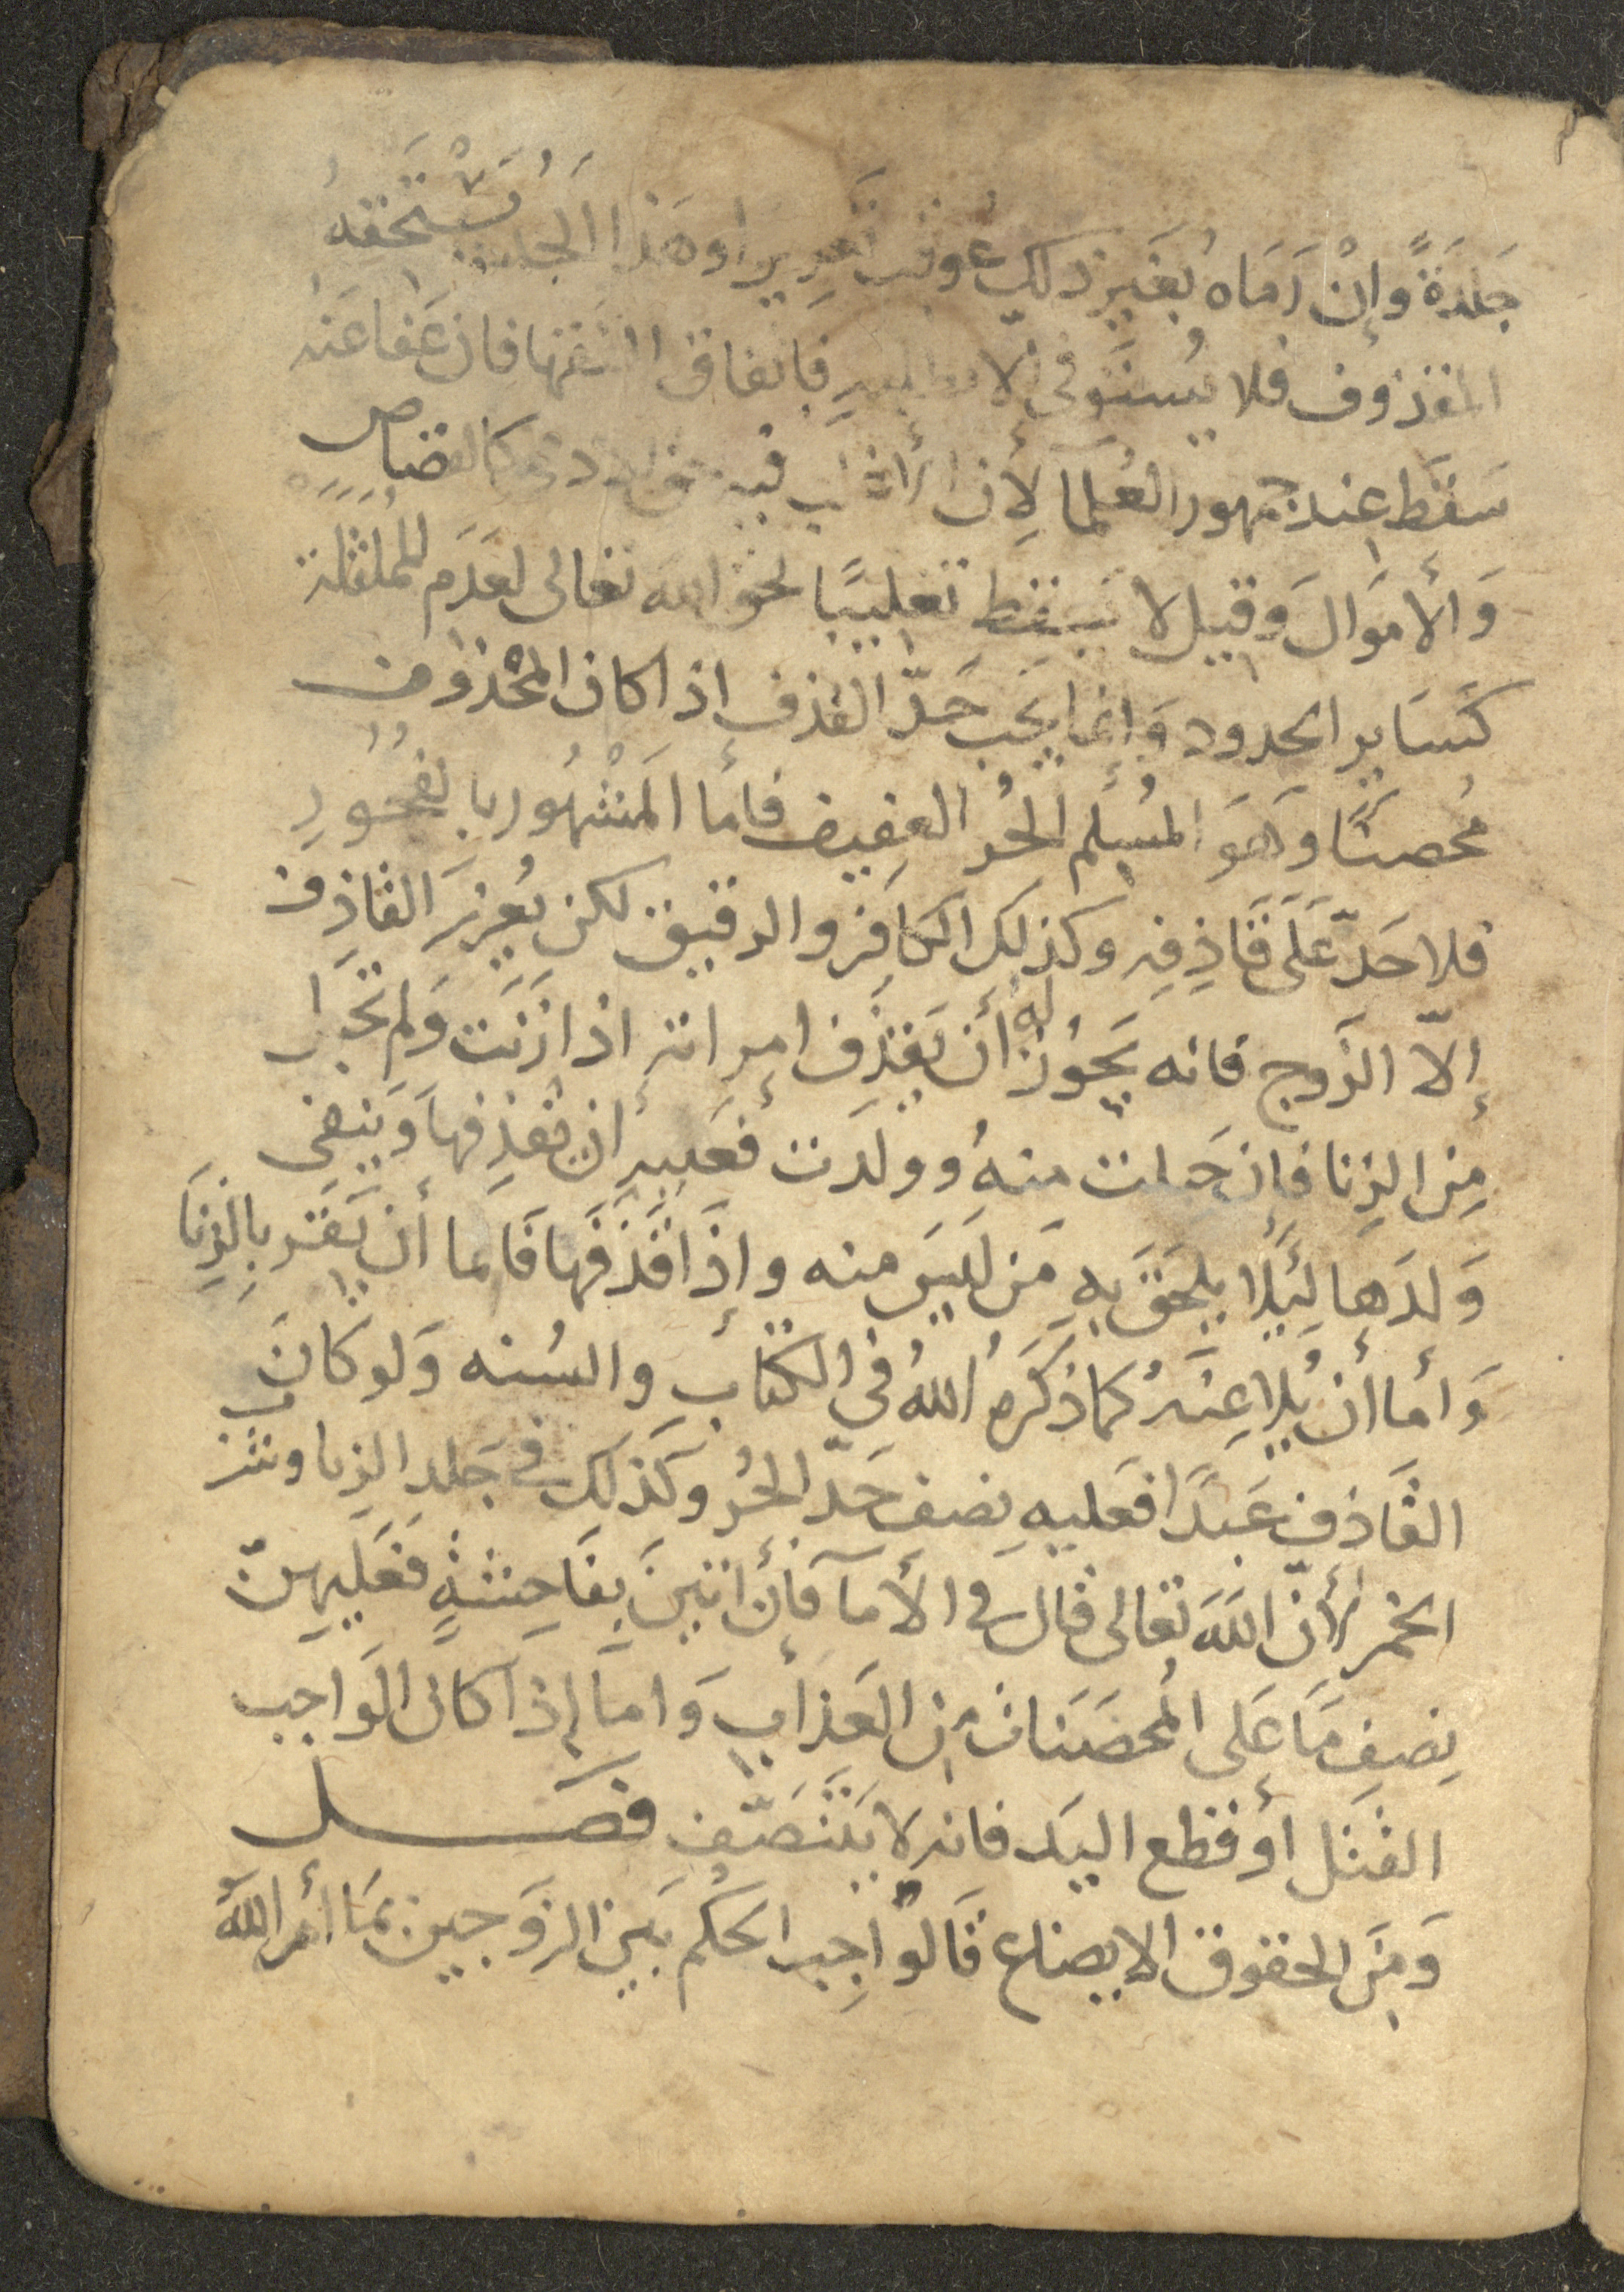 جَلدَةً وإنْ رَمَاه بغَيرِ ذلك عُوقب تَعزِيرا وهَذا الجلد يَسْتَحقهُ
المقذوف فلا يُستَوفى إلا بطلبه باتفاق الفقها فان عَفا عَنه
سَقَط عِند جمهور العُلمآ لأن المُغلب فيه حق الادمى كالقصاص
وَالأموَالَ وَقيل لا يسقط تغليبًا لحق الله تعالى لعَدَم المُمَاثَلَة
كَسَاير الحدود وَانما يجب حَدّ القذف اذا كان المقذوف
مُحصنًا وَهوَ المُسِلم الحُر العفيف فأما المَشْهُور بالفُجُورِ
فلا حَدّ عَلَى قَاذِفِه وكذلك الكافر والرقيق لكن يُعزر القَاذِف
إلاّ الزَوج فانه يَجُوز لهُ أن يَقذِف امراته إذا زَنَت وَلم تحبَل
مِن الزِنا فإن حَبلت مِنهُ وولَدَت فعَليه أن يقذِفها وَينفى
وَلدَها لِئَلّا يلحَقَ بهِ مَن لَيسَ منه وإذَا قَذَفَها فَاما أن تَقر بِالزِنَا
وَأما أن تُلاعِنَهُ كما ذكَرَهُ اللهُ في الكتاب والسُنه وَلو كانَ
القَاذف عَبدًا فعَليهِ نِصف حَدّ الحُر وكَذلِك في جَلدِ الزِنا وشرب
الخمر لأنّ اللهَ تعالى قال في الأمآ فإن أتينَ بفَاحِشَةٍ فعَلَيهنّ
نِصف مَا عَلى المُحصَنات من العَذَاب وَامَا إذا كان الوَاجب
القتل أو قطع اليَد فانه لا يَتَنَصّف فصَــل
وَمِنَ الحقوق الابضاع فَالوَاجِب الحكم بَين الزَوجين بمَا أمَر اللهُ